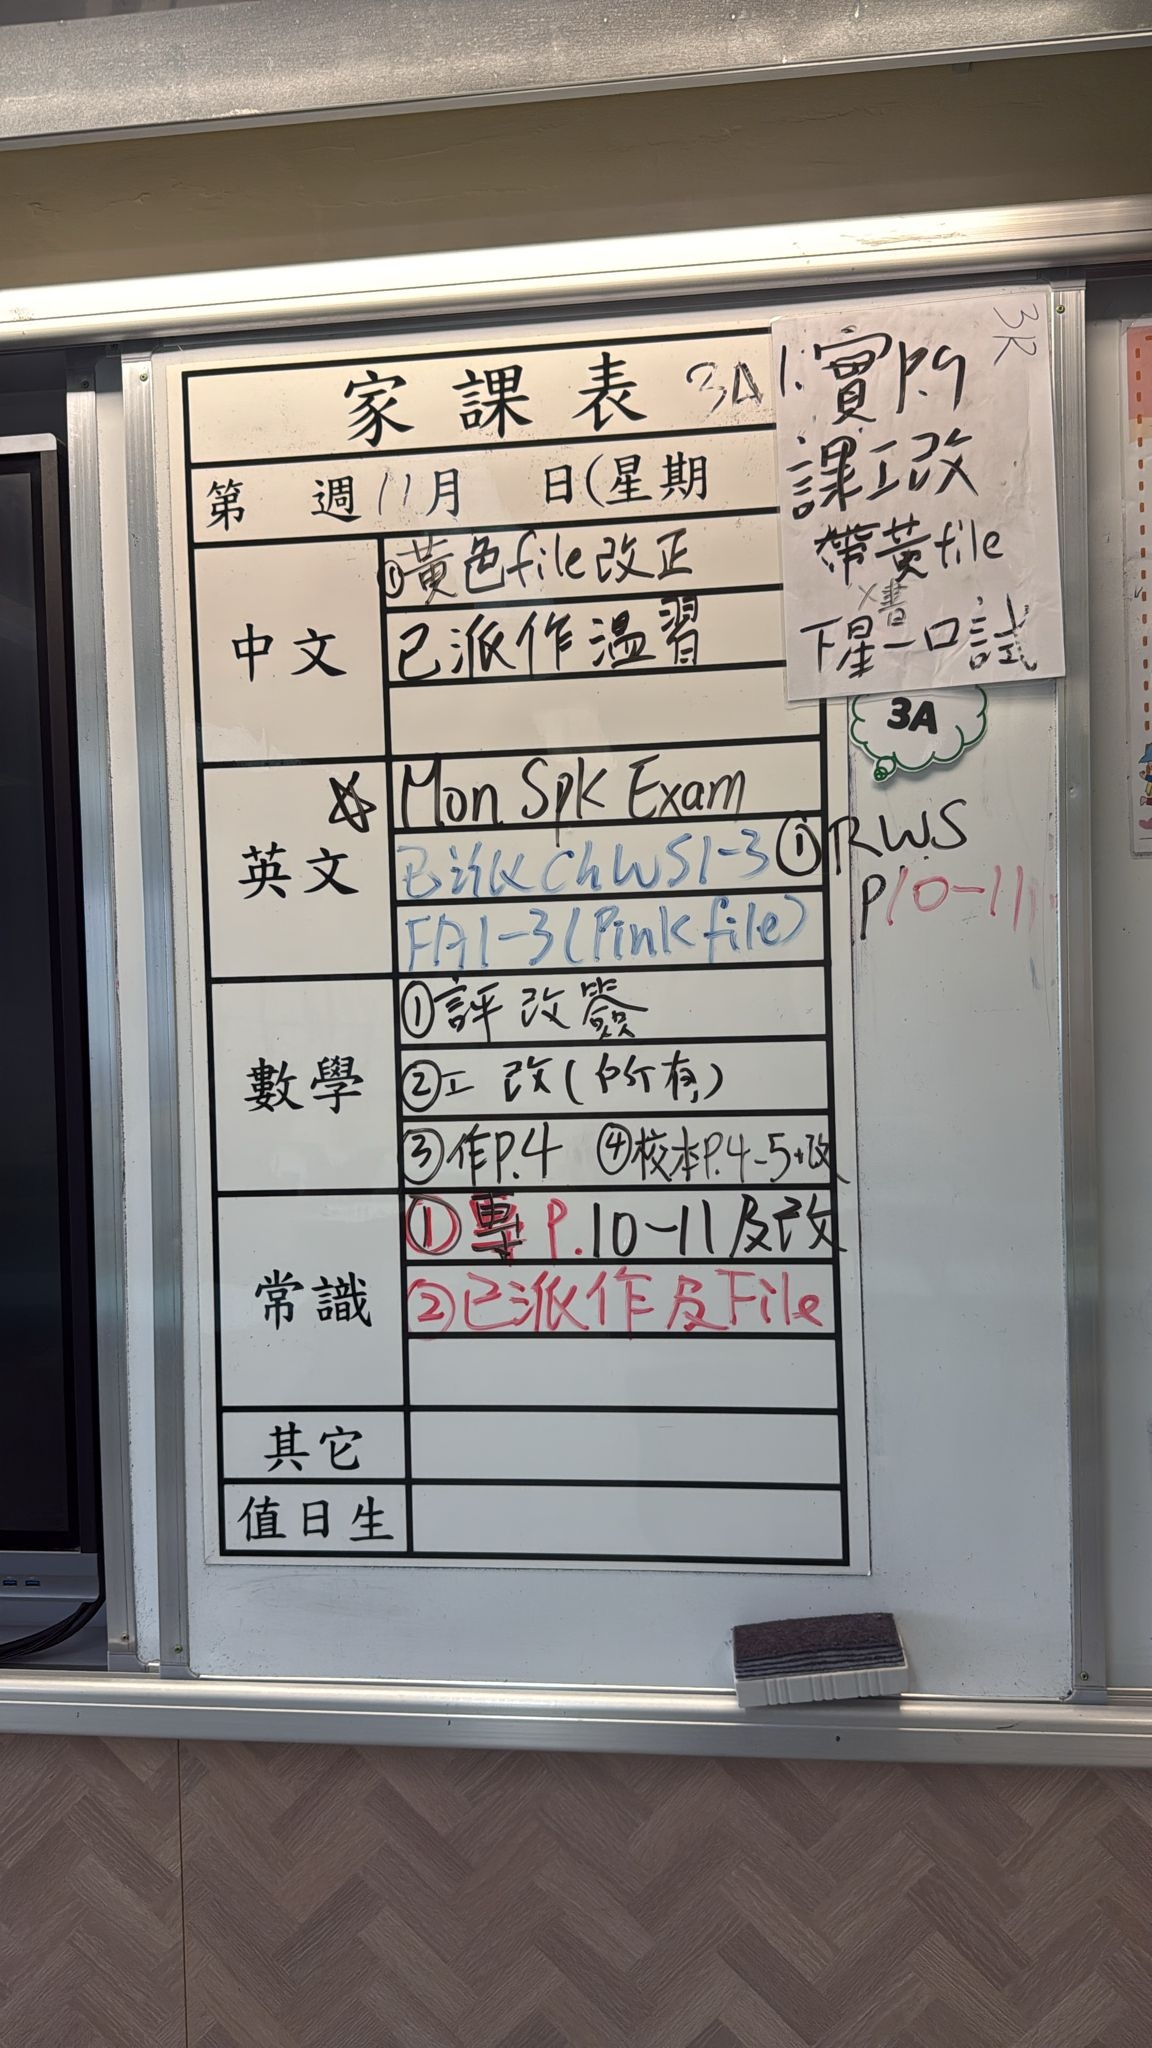 家課表 3A
第 週 11月 日(星期
中文
①黃色file改正
已派作溫習
英文
☆ Mon Spk Exam
已派 Ch WS1-3 ① RWS
P10-11
FA1-3 (Pink file)
數學
①評改簽
②工改(所有)
③作P.4 ④校本P.4-5+改
常識
①專P.10-11及改
②已派作及File
其它
值日生
3R
1.實P.9
課工改
帶黃file
X書
下星一口試
3A